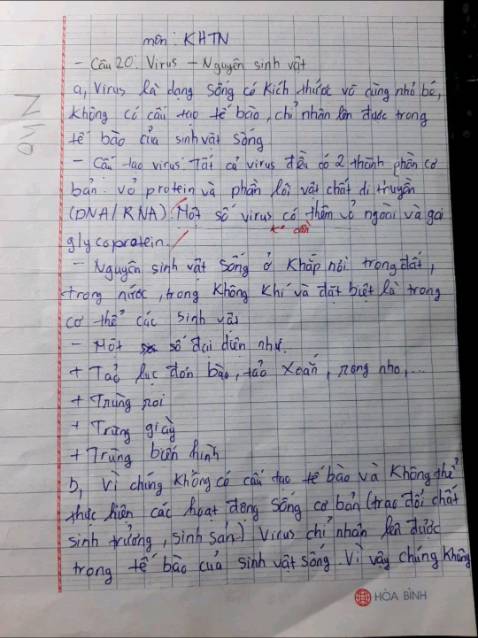 môn: KHTN
- Câu 20: Virus - Nguyên sinh vật
a, Virus là dạng sống có kích thước vô cùng nhỏ bé,
không có cấu tạo tế bào, chỉ nhân lên được trong
tế bào của sinh vật sống
- Cấu tạo virus: Tất cả virus đều có 2 thành phần cơ
bản: vỏ protein và phần lõi vật chất di truyền
(DNA/RNA). Một số virus có thêm vỏ ngoài và gai
glycoprotein.
- Nguyên sinh vật sống ở khắp nơi trong đất,
trong nước, trong không khí và đặt biệt là trong
cơ thể các sinh vật
- Một số đại diện như.
+ Tảo lục đơn bào, tảo xoắn, rong nho,...
+ Trùng roi
+ Trùng giày
+ Trùng biến hình
b, Vì chúng không có cấu tạo tế bào và không thể
thực hiện các hoạt động sống cơ bản (trao đổi chất
sinh trưởng, sinh sản) Virus chỉ nhân lên được
trong tế bào của sinh vật sống. Vì vậy chúng không
HÒA BÌNH